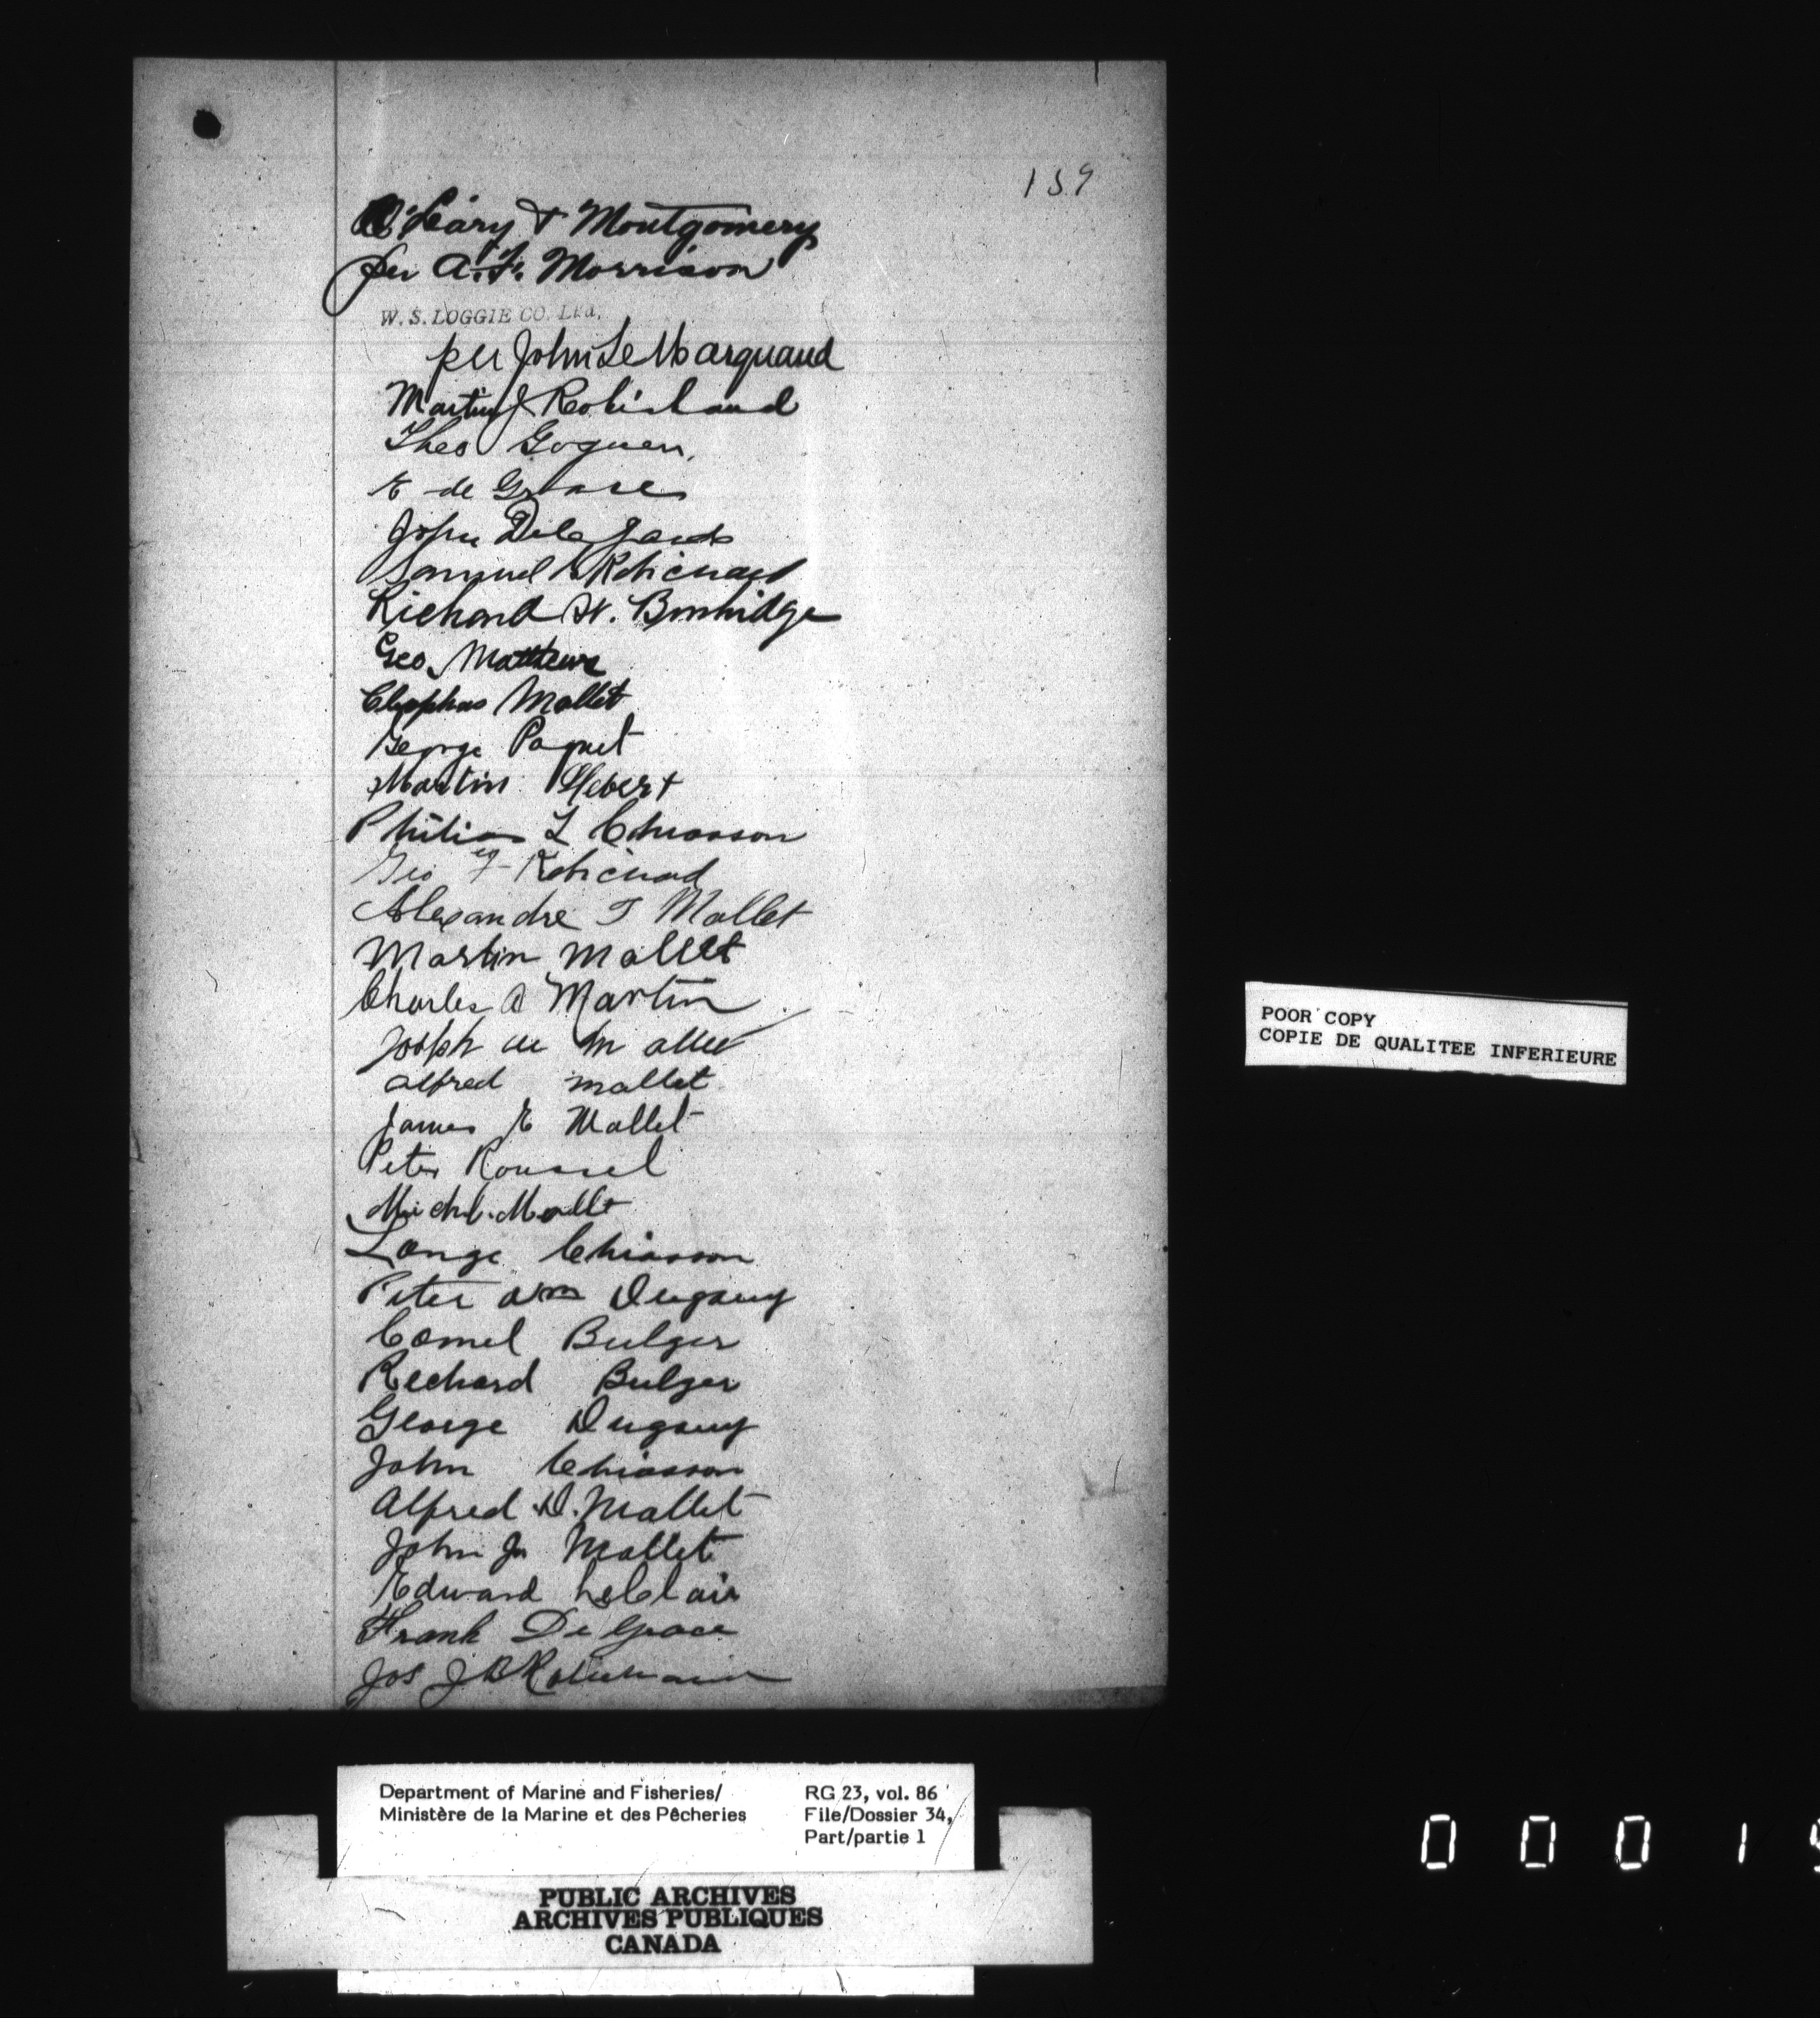 159
O'Leary & Montgomery
per A. F. Morrison
W. S. LOGGIE CO. Ltd.
per John Le Marquand
Martin J Robichaud
Theo Goguen.
E de Grace
John
Samuel Robichaud
Richard W.
Geo. Mathews
Cleophas Mallet
George Paquet
Martin Hebert
Philias L Chiasson
Geo Robichaud
Alexandre T Mallet
Martin Mallet
Charles A Martin
Joseph Mallet
alfred mallet
James E Mallet
Peter Roussel
Michl. Mallet
Lange Chiasson
Peter Wm Duguay
Comel Bulger
Rechard Bulger
George Duguay
John Chiasson
Alfred D. Mallet
John Jn Mallet
Edward LeClair
Frank De Grace
Jos J B Robichaud
POOR COPY
COPIE DE QUALITEE INFERIEURE
Department of Marine and Fisheries/ RG 23, vol. 86
Ministère de la Marine et des Pêcheries File/Dossier 34,
Part/partie 1
PUBLIC ARCHIVES
ARCHIVES PUBLIQUES
CANADA
0 0 0 1